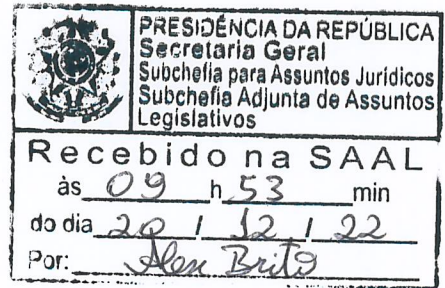 PRESIDÊNCIA DA REPÚBLICA
Secretaria Geral
Subchefia para Assuntos Jurídicos
Subchefia Adjunta de Assuntos
Legislativos
Recebido na SAAL
às 09 h 53 min
do dia 20 / 12 / 22
Por: Alex Brito